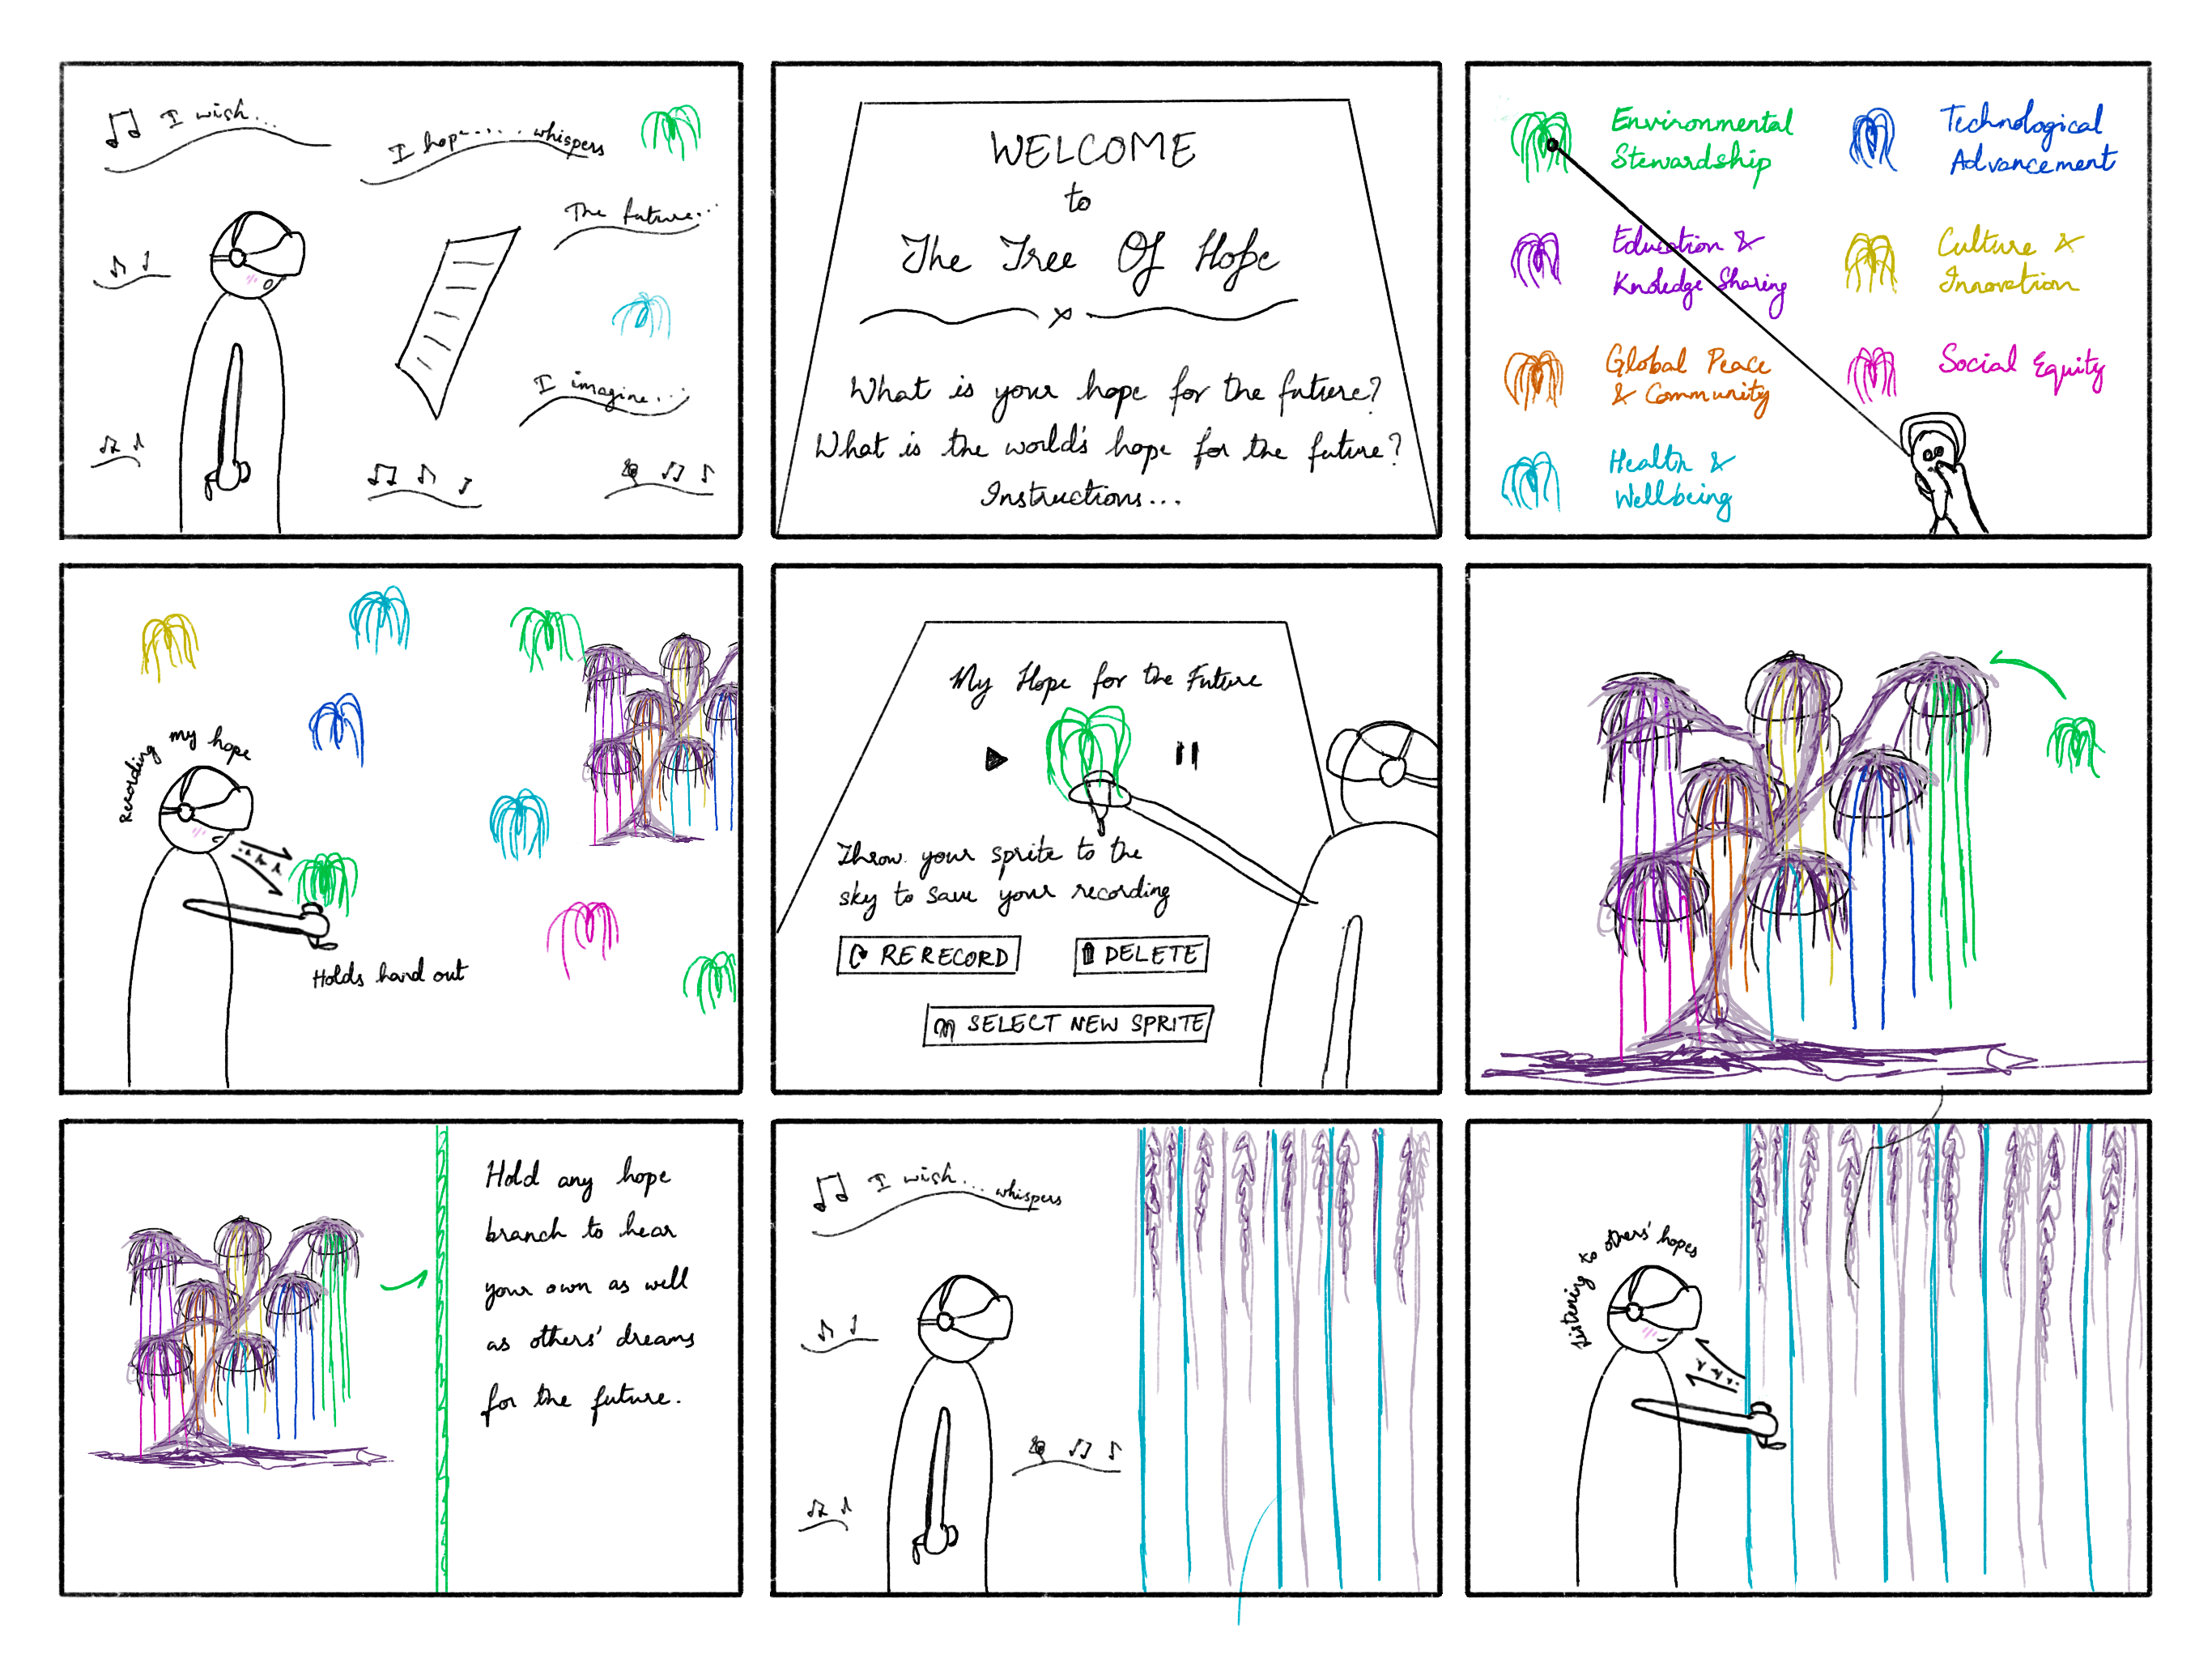 I wish...
I hope..... whispers
The future...
I imagine...
WELCOME
to
The Tree Of Hope
What is your hope for the future?
What is the world's hope for the future?
Instructions...
Environmental
Stewardship
Technological
Advancement
Education &
Knoledge Sharing
Culture &
Innovation
Global Peace
& Community
Social Equity
Health &
Wellbeing
Recording my hope
Holds hand out
My Hope for the Future
Throw your sprite to the
sky to save your recording
RERECORD
DELETE
SELECT NEW SPRITE
Hold any hope
branch to hear
your own as well
as others' dreams
for the future.
I wish... whispers
Listening to others' hopes